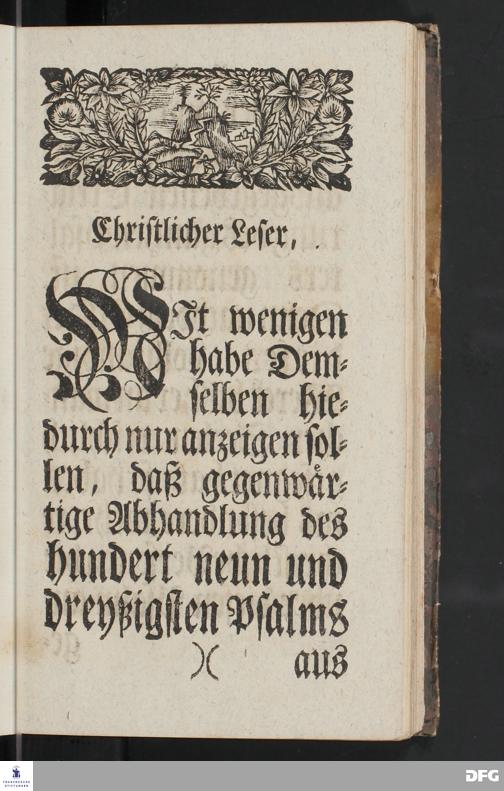 Christlicher Leser,
MIt wenigen
habe Dem-
selben hie-
durch nur anzeigen sol-
len, daß gegenwär-
tige Abhandlung des
hundert neun und
dreyßigsten Psalms
)( aus
FRANCKESCHE
STIFTUNGEN
DFG